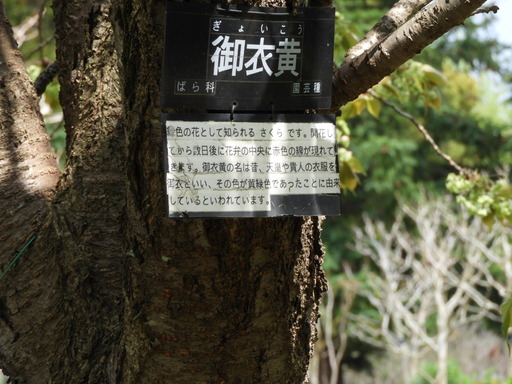 ぎょいこう
御衣黄
ばら科 園芸種
緑色の花として知られる さくら です。開花し
てから数日後に花弁の中央に赤色の線が現れて
きます。御衣黄の名は昔、天皇や貴人の衣服を
御衣といい、その色が黄緑色であったことに由来
しているといわれています。